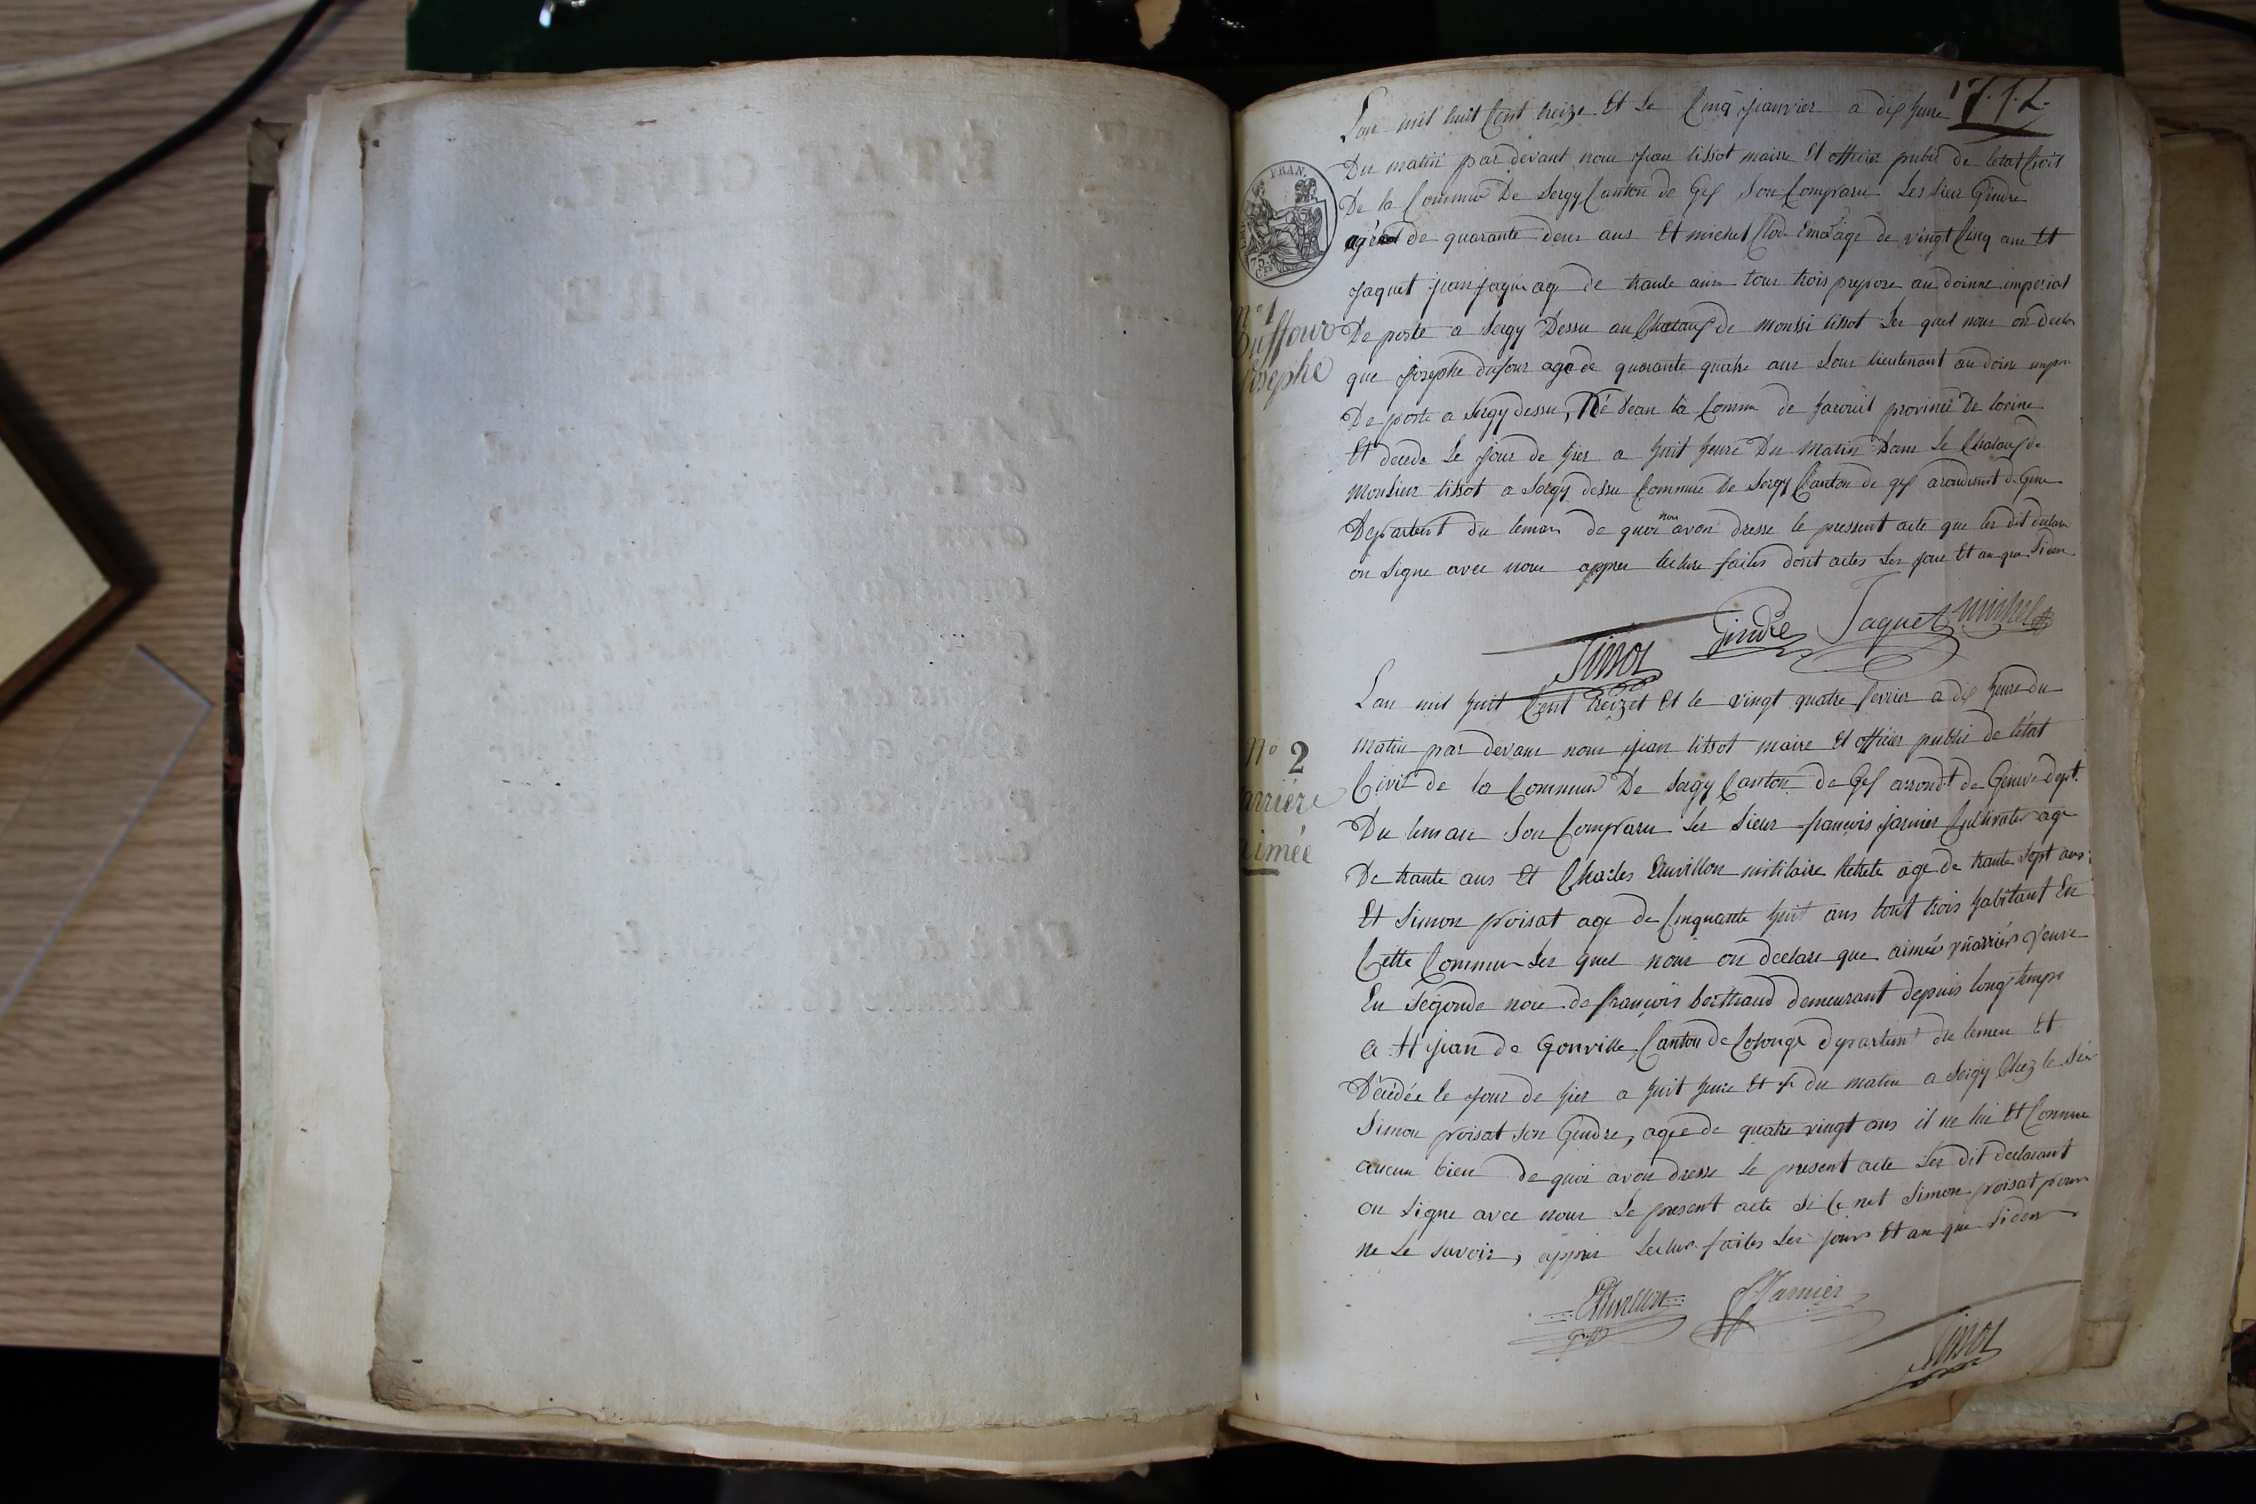 Lan mil huit Cent treize Et Le Cinq janvier a dix heure
Du matin par devant nous jean tissot maire Et officier public de letat Civil
De la Commune De Sergy Canton de Gex Son Comparu Les sieur Gindre
agé de quarante deux ans Et michel Clod agé de vingt Cinq ans Et
jaquet jean jaque agé de trante ans tous trois prepose au doinne imperial
De poste a Sergy Dessu au Chataux de monssi tissot Les quel nous on declar
que josephe dufour age de quarante quatre ans Sous lieutenant au doine
De poste a Sergy dessu, Né dean la Comm de province De lorine
Et decede Le jour de hier a huit heure Du matin Dans Le Chataux de
Monsieur tissot a Sergy dessu Commune De Sergy Canton de gex
Departemt du leman de quoi nous avon dresse le pressent acte que les dit
on signe avec nous appres lecture faites dont actes Les jour Et an que
n° 1
Duffour
Josephe
7.1.2.
FRAN.
75
Tissot
Gindre
Jaquet
michel
Lan mil huit Cent treizet Et le vingt quatre fevrier a dix heure du
matin par devant nous jean titsot maire Et officier public de létat
Civil de la Commune De Sergy Canton de Gex arrondt de Genève dept.
Du leman Son Comparu Les sieur françois jarnier Cultivater age
De trante ans Et Charles militaire Retrete age de trante sept ans
Et Simon proisat age de Cinquante huit ans tout trois habitant En
Cette Commune Les quel nous on declare que aimée veuve
En Segonde noce de françois bertrand demeurant depuis long temps
a St jean de Gonville Canton de Colonge departemt du leman Et
Décédée le jour de hier a huit heure Et du matin a Sergy Chez le Sie
Simon proisat son Gendre, agée de quatre vingt ans il ne lui Et Connue
aucun bien De quoi avon dresse le present acte Les dit declarant
on signe avec nous Le present acte Si Ce net Simon proisat pour
ne Le Savoir, appres Lecture faites Les jours Et an que
N° 2
arriere
aimée
jarnier
Tissot